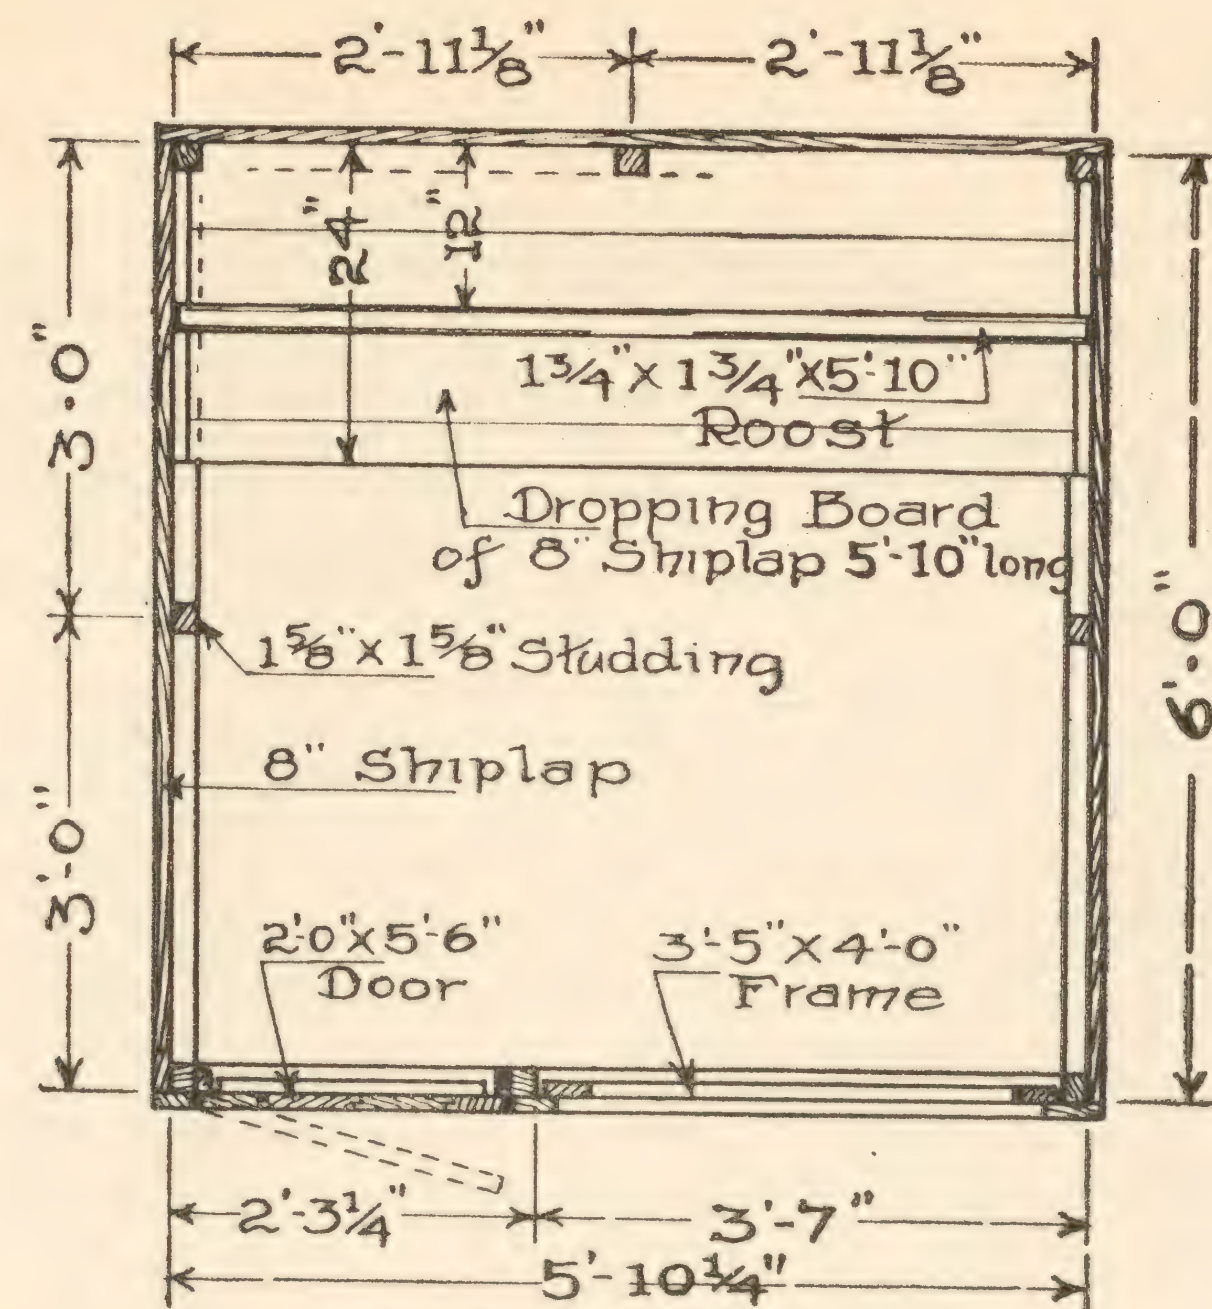 2'-11 1/8" 2'-11 1/8"
24"
12"
3'-0"
6'-0"
1 3/4" X 1 3/4" X 5'-10"
Roost
Dropping Board
of 8" Shiplap 5'-10" long
1 5/8" X 1 5/8" Studding
8" Shiplap
3'-0"
2'-0" X 5'-6"
Door
3'-5" X 4'-0"
Frame
2'-3 1/4" 3'-7"
5'-10 1/4"